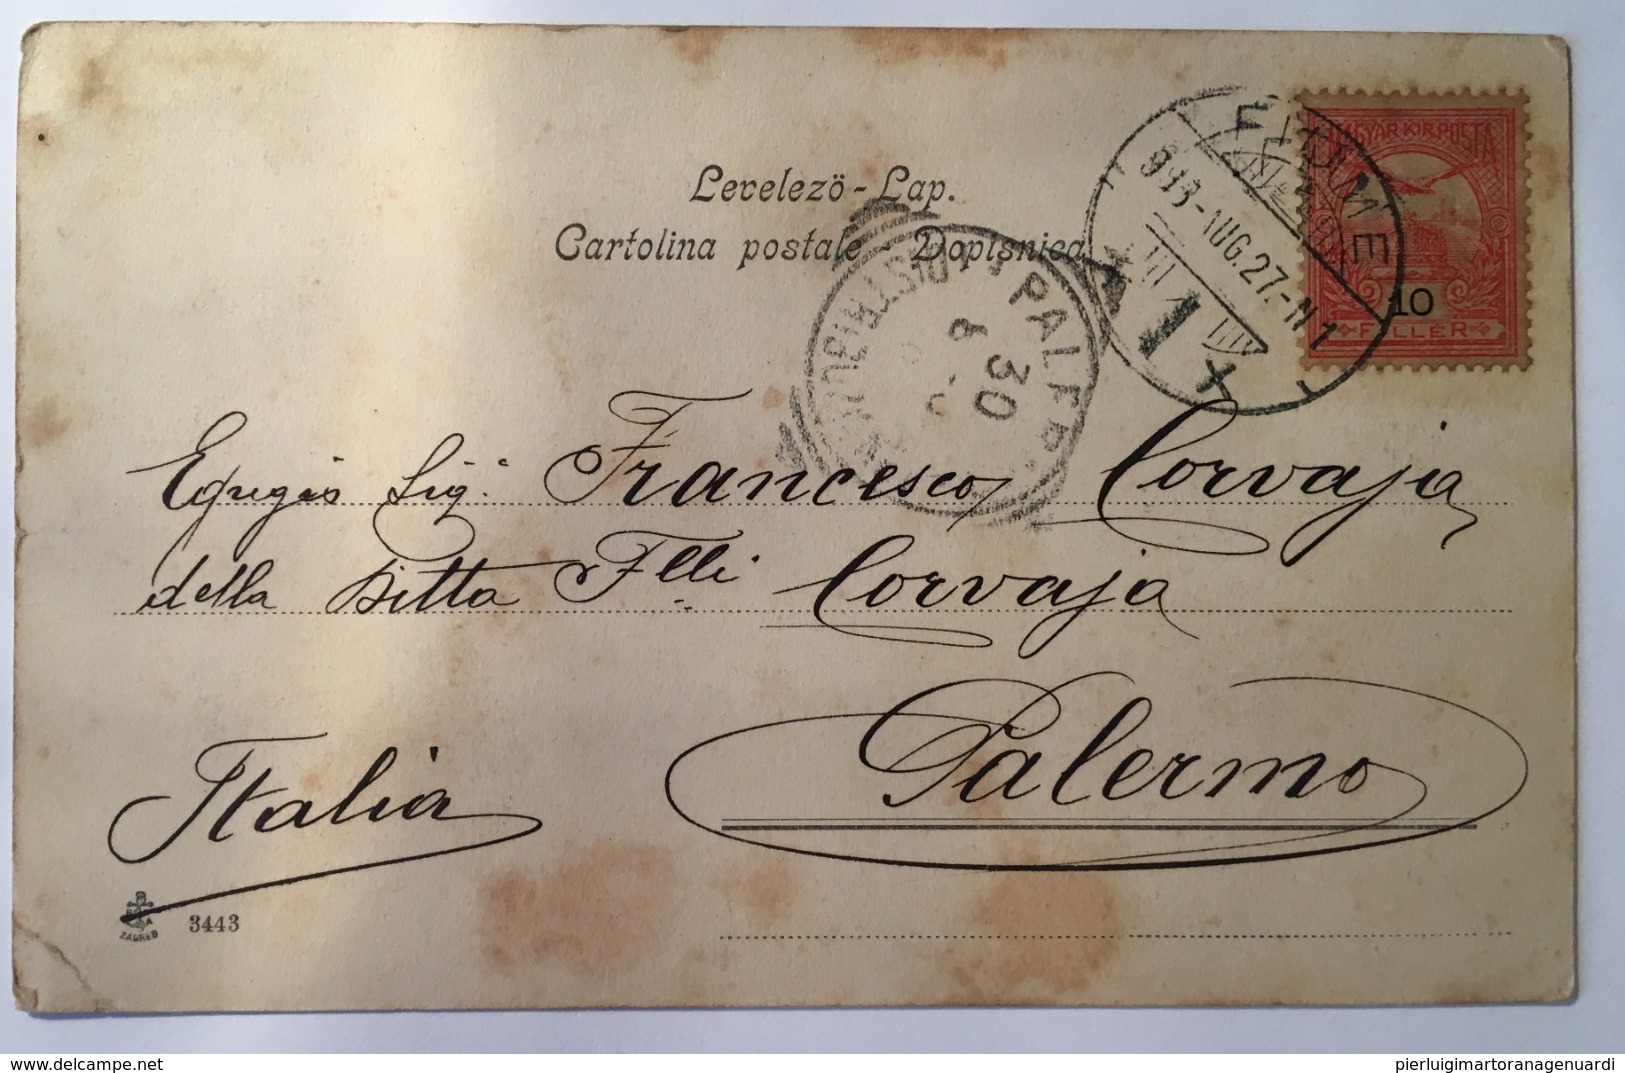 Levelező - Lap.
Cartolina postale - Dopisnica
MAGYAR KIR. POSTA
10
FILLER
FIUME
903-AUG.27.-N1
PALER
DISTRIBUZ
6 30
Egregio Sig.r Francesco Corvaja
della Ditta Flli Corvaja
Palermo
Italia
ZAGREB
3443
pierluigimartoranagenuardi